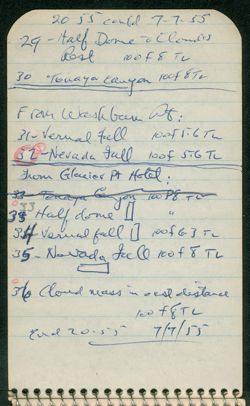 20 55 could 7-7-55
29 - Half Dome & Clouds
Rest 100 f 8 TL
30 - Tenaya Canyon 100 f 8 TL
From Washburn Pt:
31 - Vernal Fall 100 f 5.6 TL
32 - Nevada Fall 100 f 5.6 TL
From Glacier Pt Hotel:
33 - Tenaya Canyon 100 f 8 TL
33 Half dome [] "
34 Vernal fall [] 100 f 6.3 TL
35 - Nevada Fall 100 f 8 TL
36 Cloud mass in east distance
100 f 8 TL
End 20-55 7/7/55